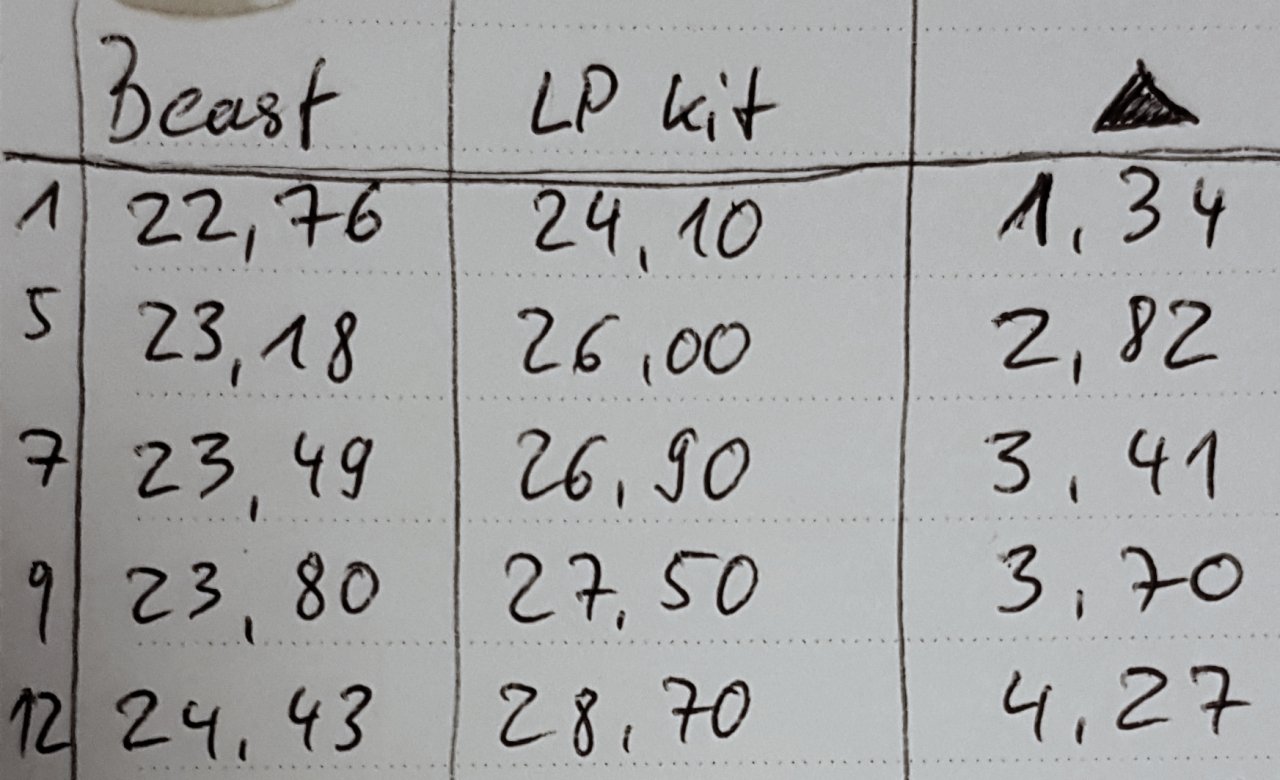 Beast LP kit ▲
1 22,76 24,10 1,34
5 23,18 26,00 2,82
7 23,49 26,90 3,41
9 23,80 27,50 3,70
12 24,43 28,70 4,27